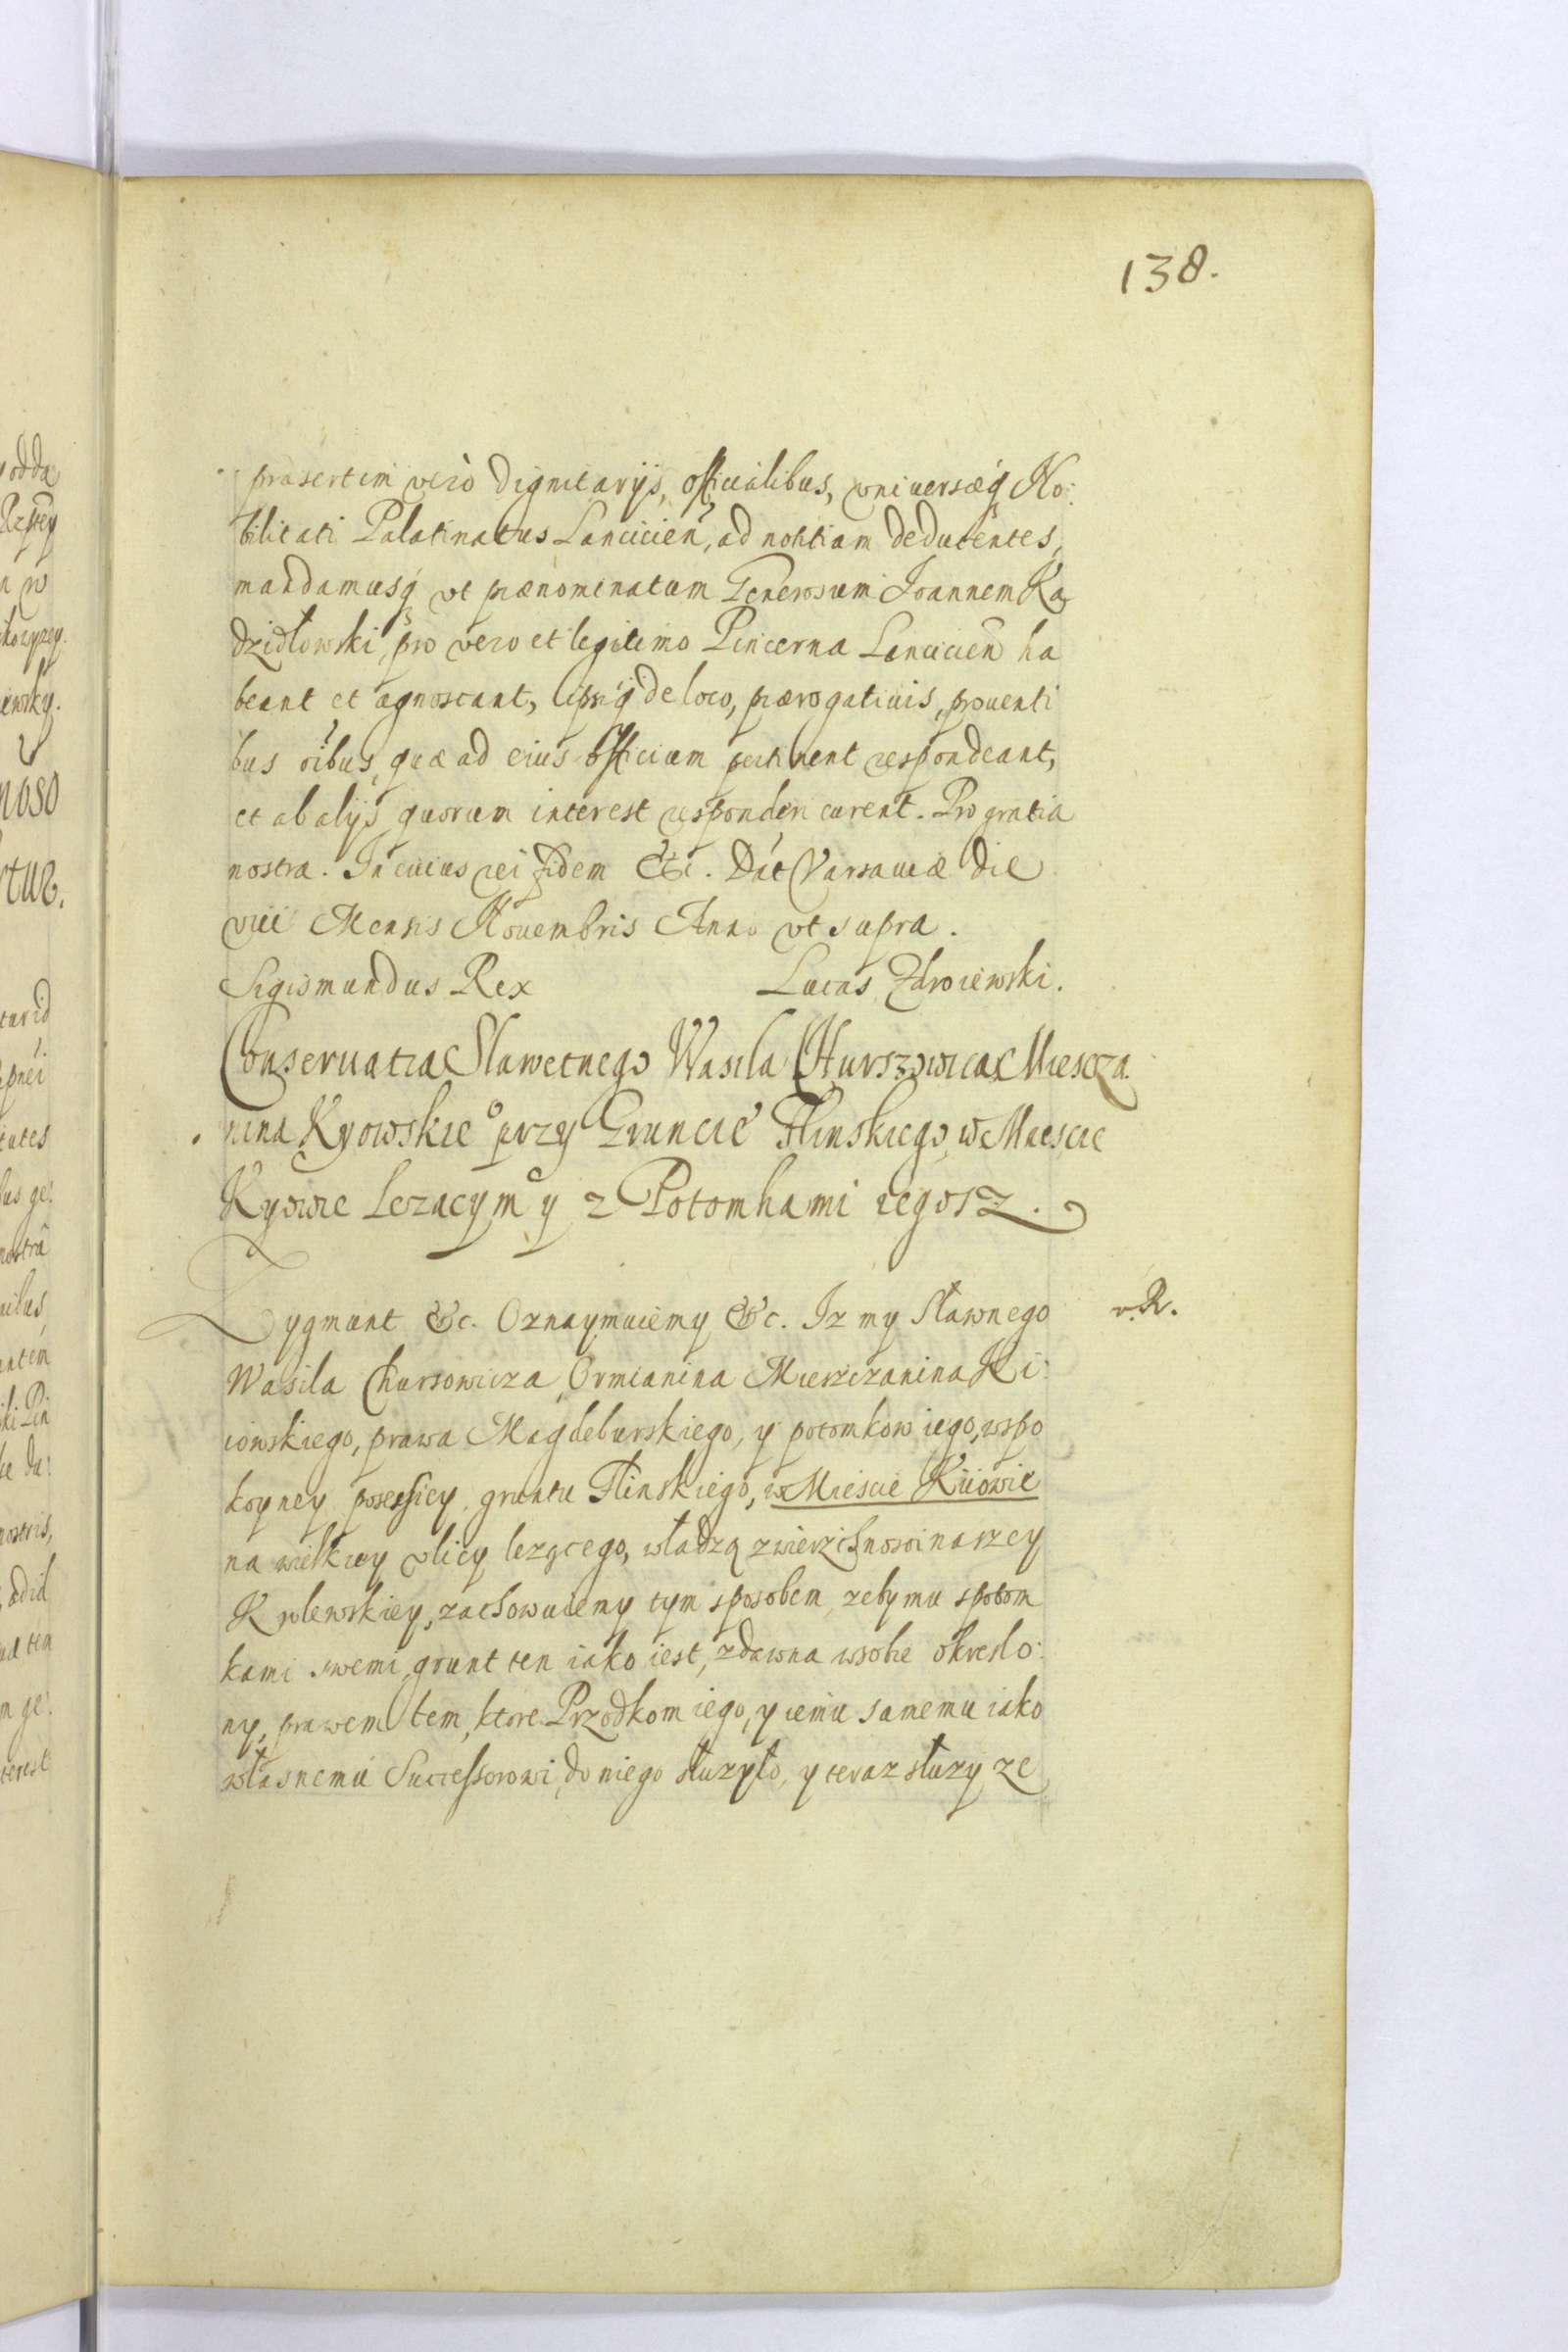 138.
præsertim verò Dignitarijs, officialibus, vniuersæq No:
bilitati Palatinatus Lancicien, ad notitiam deducentes,
mandamusq vt prænominatum Generosum Joannem Ka
dzidłowski, pro vero et legitimo Pincerna Lancicien ha
beant et agnoscant, ipsiq de loco, prærogatiuis, prouenti
bus oibus, quæ ad eius officium pertinent respondeant,
et ab alijs quorum interest responderi curent. Pro gratia
nostra. In cuius rei fidem &c. Dat Varsauiæ die
viii Mensis Nouembris Anno vt supra.
Sigismundus Rex Lucas Zdroiewski.
Conseruatia Sławetnego Wasila Churszowica Miescza
nina Kyowskieo przy Gruncie Flinskiego w Miescie
Kyowie Lezacym y z Potomkami iegosz.
Zygmunt &c. Oznaymuiemy &c. Iz my Sławnego
v.R.
Wasila Chursowicza Ormianina Miesczanina Ki:
iowskiego, prawa Magdeburskiego, y potomkow iego, wspo
koyney posessiey gruntu Flinskiego, w Miescie Kiiowie
na wielkiey vlicy lezącego, władzą zwierzchnosci naszey
Krolewskiey, zachowuiemy tym sposobem zeby mu spotom
kami swemi, grunt ten iako iest, zdawna wsobie okreslo:
ny, prawem tem, ktore Przodkom iego, y iemu samemu iako
własnemu Successorowi, do niego słuzyło, y teraz słuzy ze